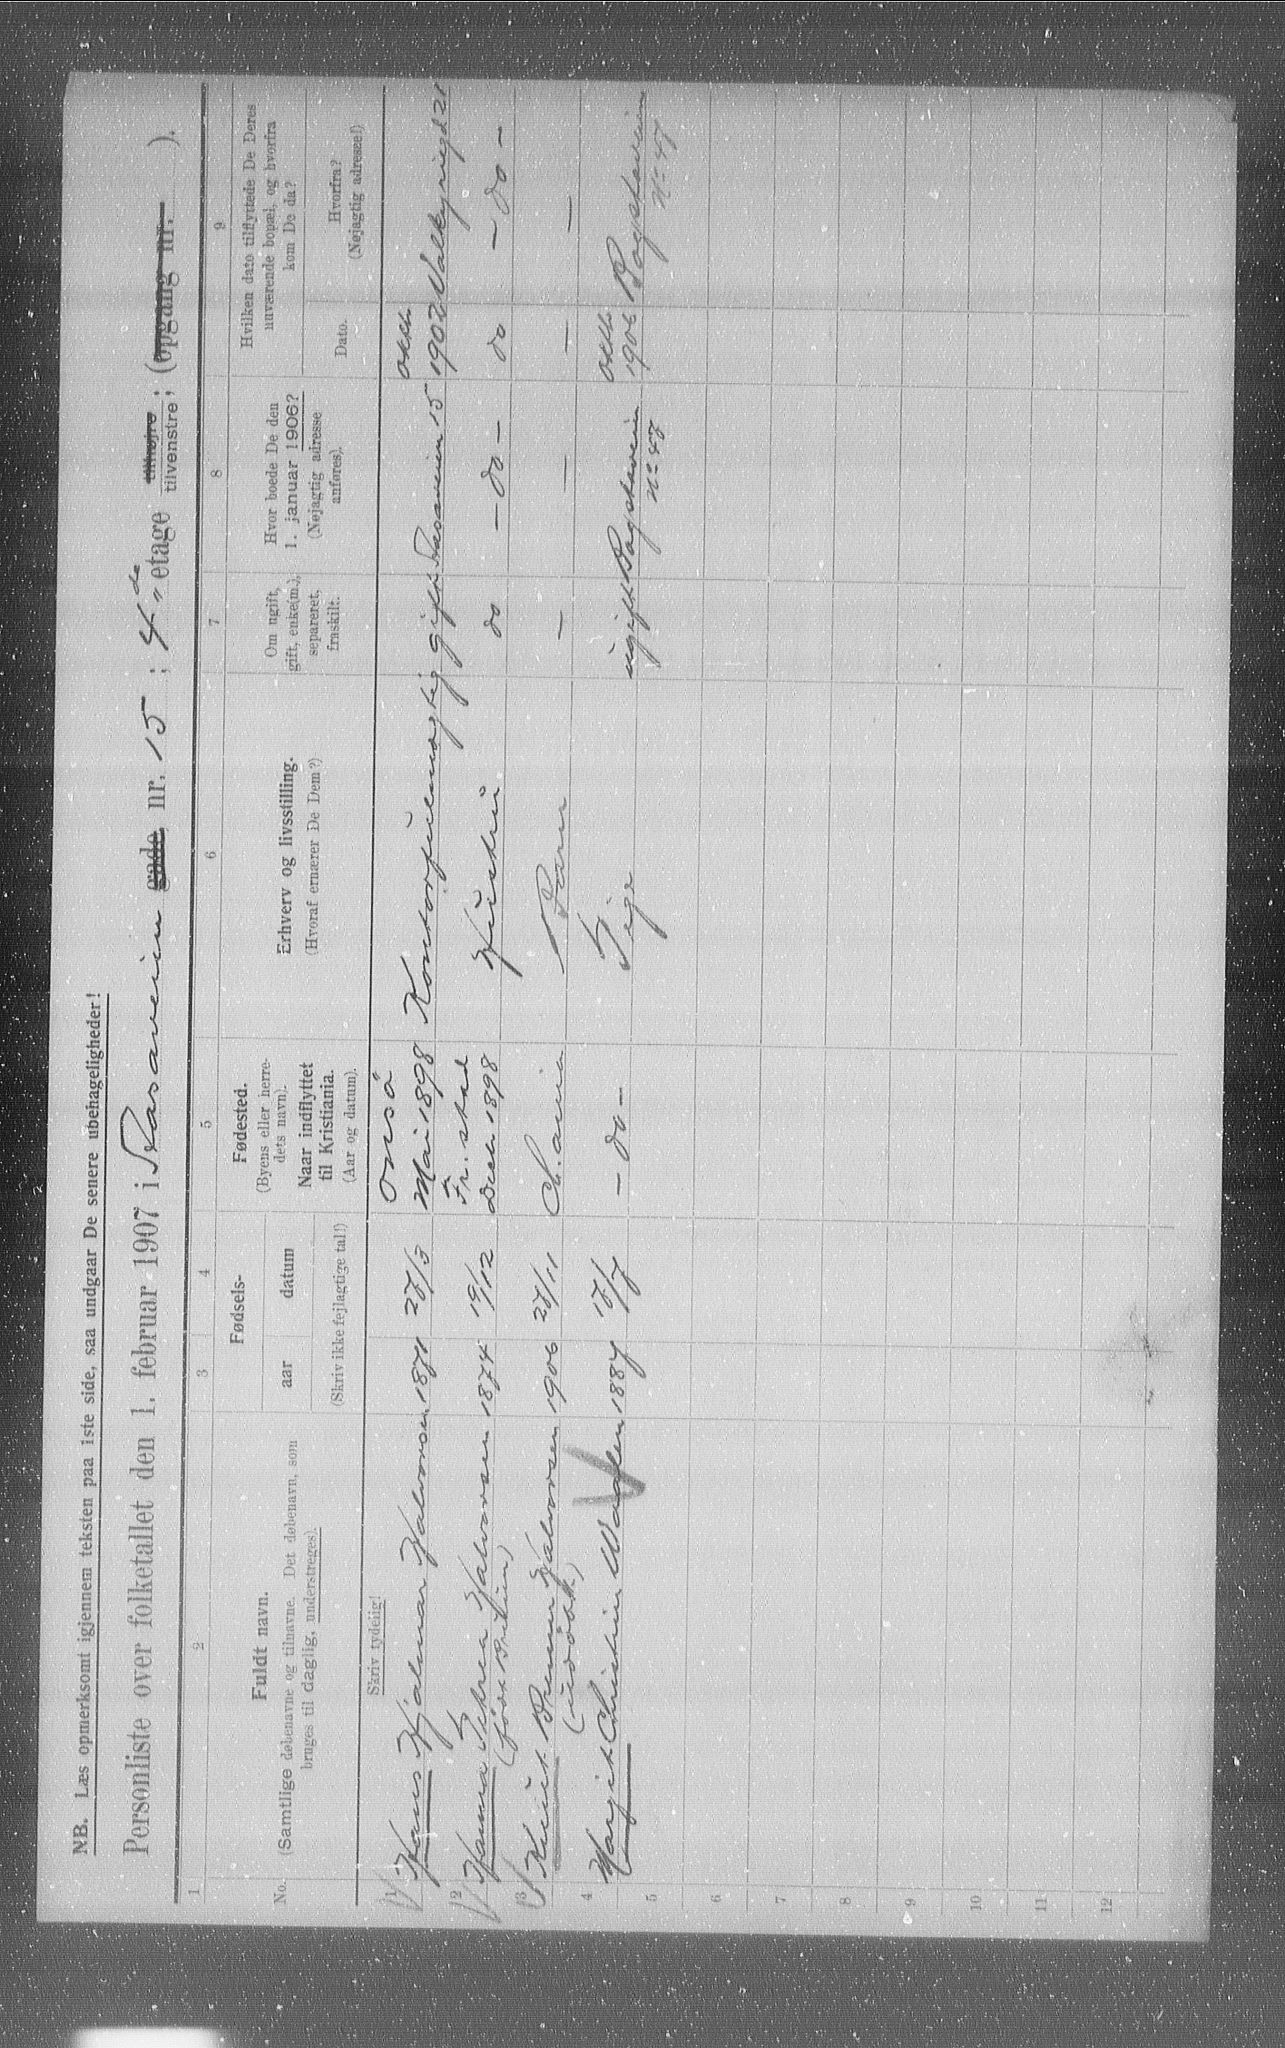 NB. Læs opmerksomt igjennem teksten paa 1ste side, saa undgaar De senere ubehageligheder!
Personliste over folketallet den 1. februar 1907 i Vasaveien gade, nr. 15 ; 4de etage tilhøjre tilvenstre ; (opgang nr. ).
1 2 3 4 5 6 7 8 9
No.
Fuldt navn.
(Samtlige døbenavne og tilnavne. Det døbenavn, som
bruges til daglig, understreges).
Fødsels-
aar datum
(Skriv ikke fejlagtige tal!)
Fødested.
(Byens eller herre-
dets navn).
Naar indflyttet
til Kristiania.
(Aar og datum).
Erhverv og livsstilling.
(Hvoraf ernærer De Dem?)
Om ugift,
gift, enke(m.),
separeret,
fraskilt.
Hvor boede De den
1. januar 1906?
(Nøjagtig adresse
anføres).
Hvilken dato tilflyttede De Deres
nuværende bopæl, og hvorfra
kom De da?
Dato.
Hvorfra?
(Nøjagtig adresse!)
Skriv tydelig!
1 Hans Hjalmar Halvorsen 1871 27/3 Onsö Mai 1898 Kontorfuldmægtig gift Vasaveien 15 Oktb 1902 Valkyriegd 21
2 Hanna Thea Halvorsen 1874 19/12 Fr.stad Decb 1898 Hustru do - do - do - do -
(født )
3 Knut Halvorsen 1906 27/11 Ch.ania Barn - - - -
(udöbt)
4 Margit Christine Waalen 1887 17/7 - do - Pige ugift Bogstadveien No 47 Oktb 1906 Bogstadveien No 47
5
6
7
8
9
10
11
12